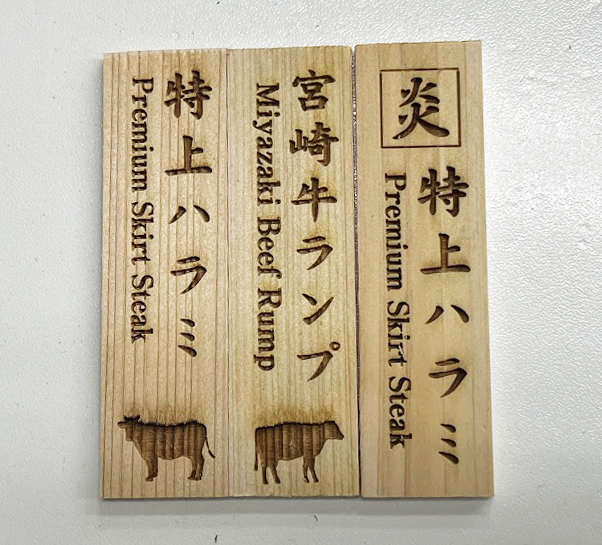 炎
特上ハラミ
Premium Skirt Steak
宮崎牛ランプ
Miyazaki Beef Rump
特上ハラミ
Premium Skirt Steak